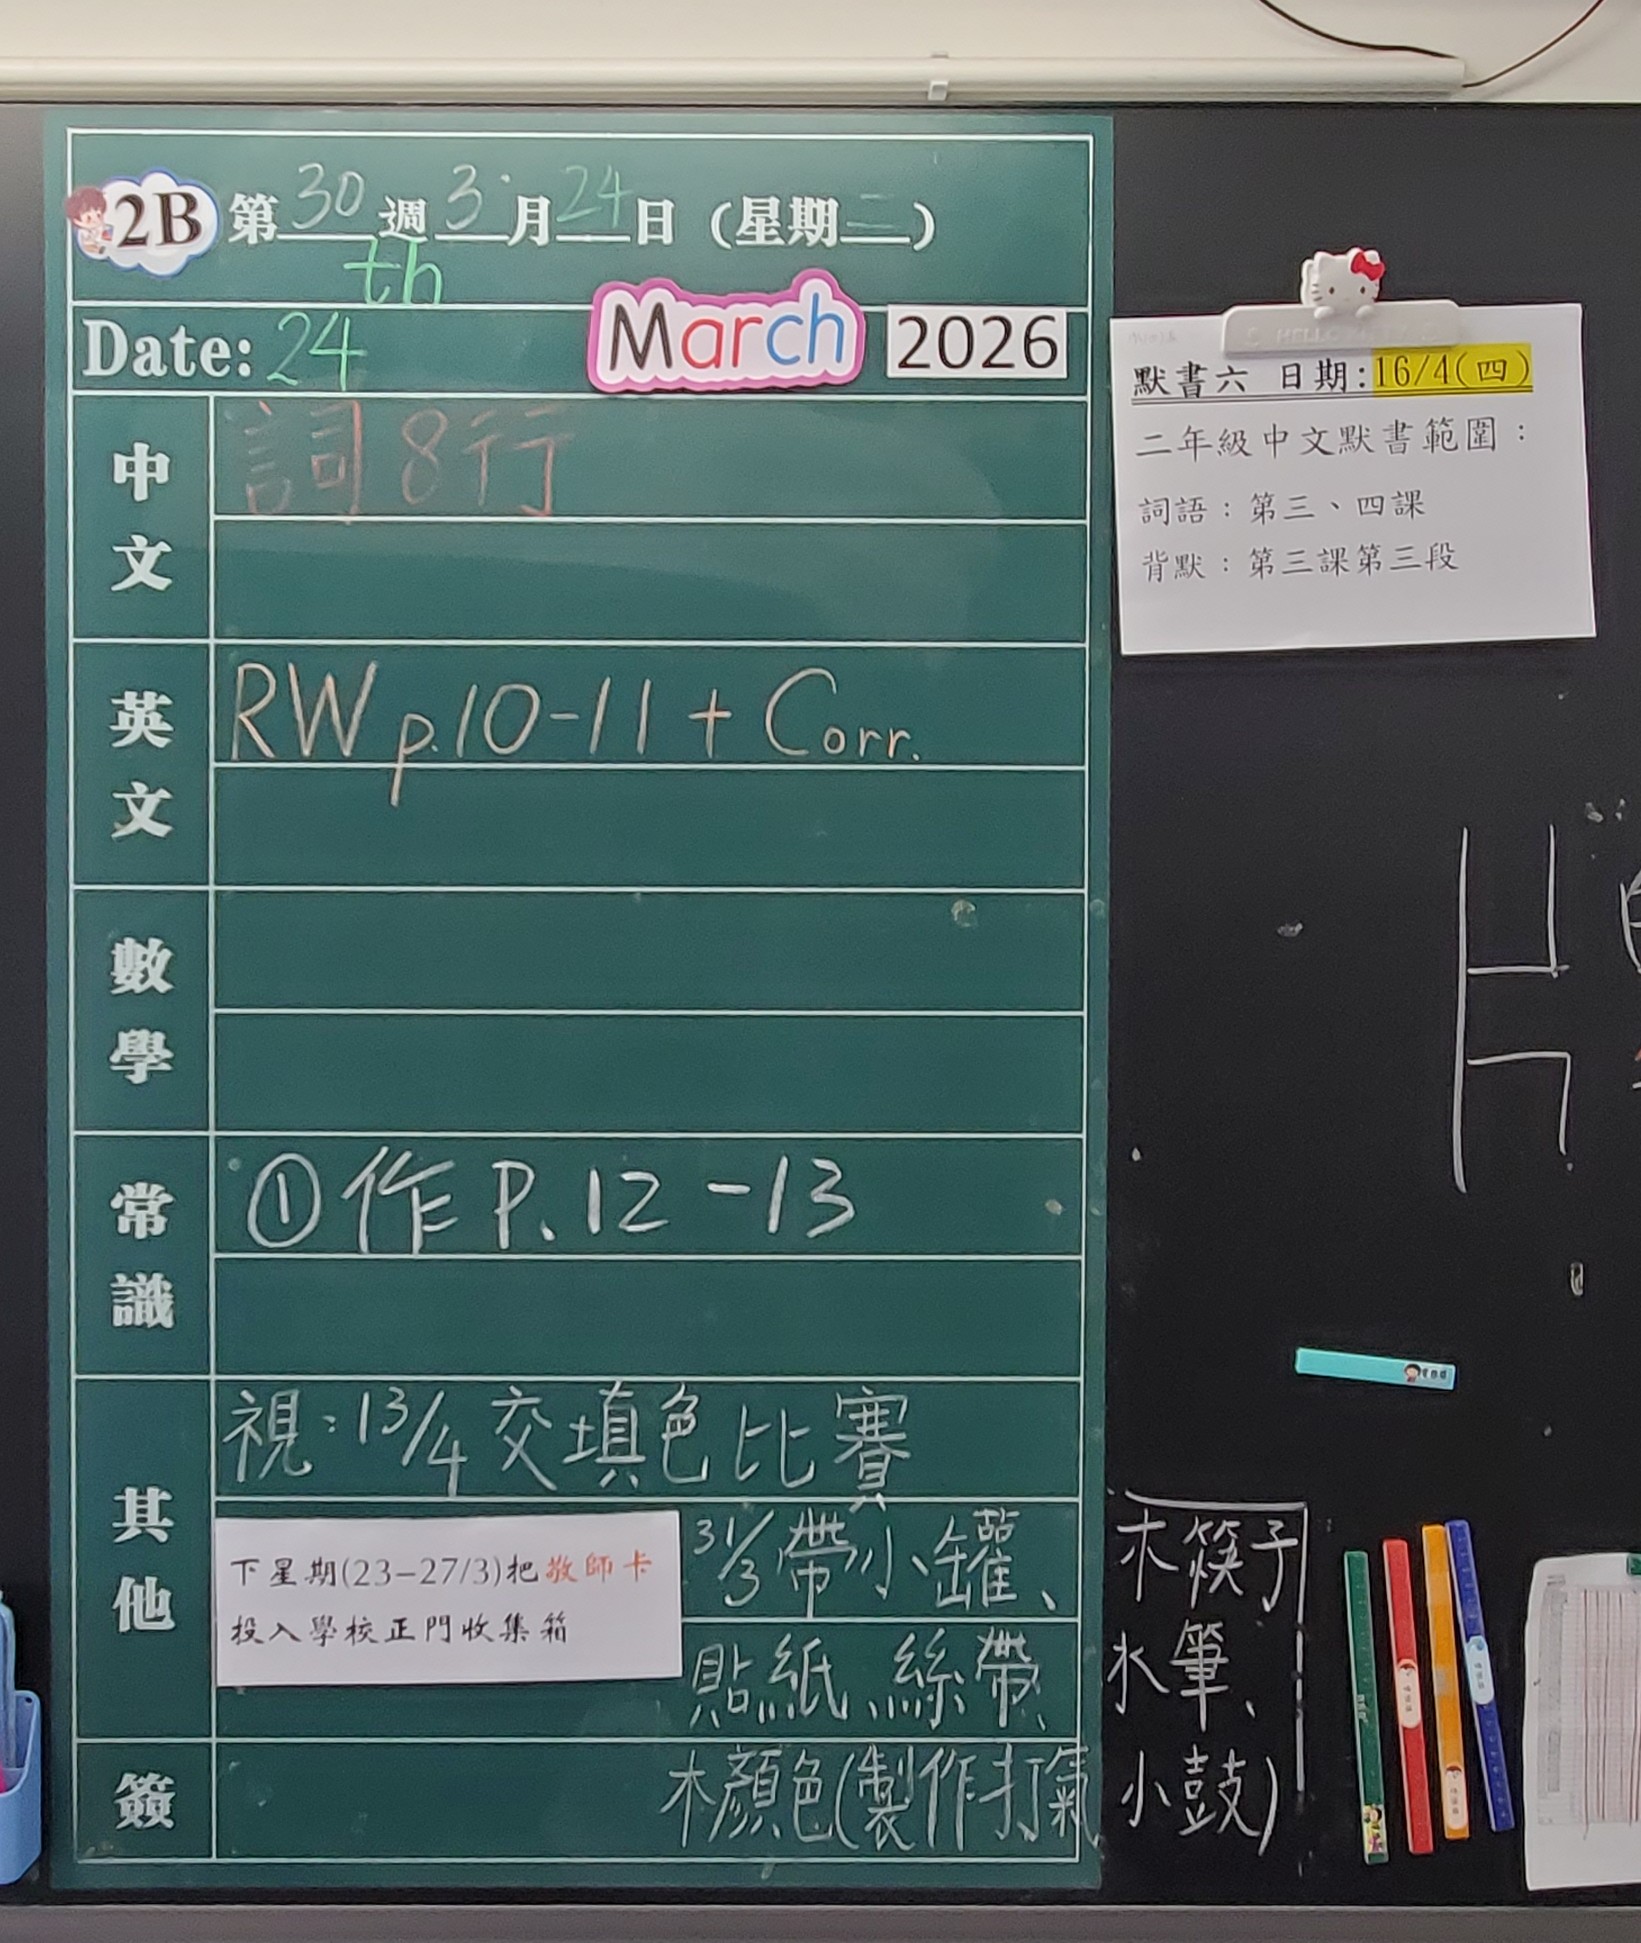 2B 第30週3月24日(星期二)
Date: 24th March 2026
中文
詞8行
英文
RW p.10-11 + Corr.
數學
常識
①作P.12-13
其他
視:13/4交填色比賽
下星期(23-27/3)把敬師卡
投入學校正門收集箱
31/3帶小罐、木筷子
貼紙、絲帶、水筆、
木顏色(製作打氣小鼓)
簽
默書六 日期:16/4(四)
二年級中文默書範圍:
詞語:第三、四課
背默:第三課第三段